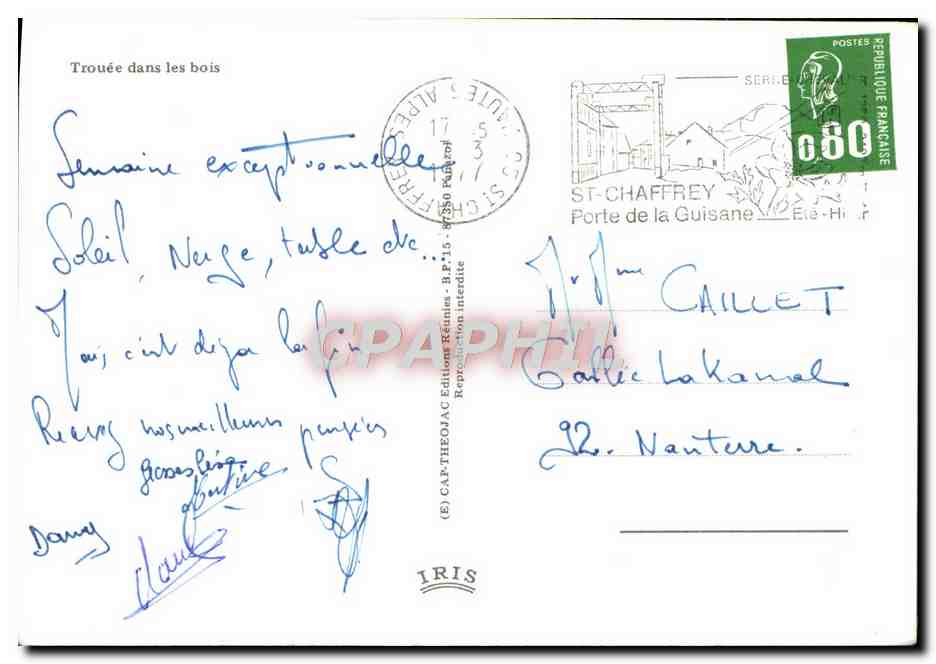 Trouée dans les bois
Semaine exceptionnelle
Soleil, Neige, table etc...
Mais c'est déja la fin
Recevez nos meilleures pensées
Grosses bises
Martine
Dany
(E) CAP-THEOJAC Editions Réunies - B.P. 15 - 87350 Panazol
Reproduction interdite
IRIS
05 ST CHAFFREY HAUTES ALPES
17
-5
-3
77
SERRE-CHEVALIER
ST-CHAFFREY
Porte de la Guisane Eté-Hiver
POSTES
REPUBLIQUE FRANÇAISE
0,80
M. Mme CAILLET
Lakanal
92. Nanterre.
CPAPHIL